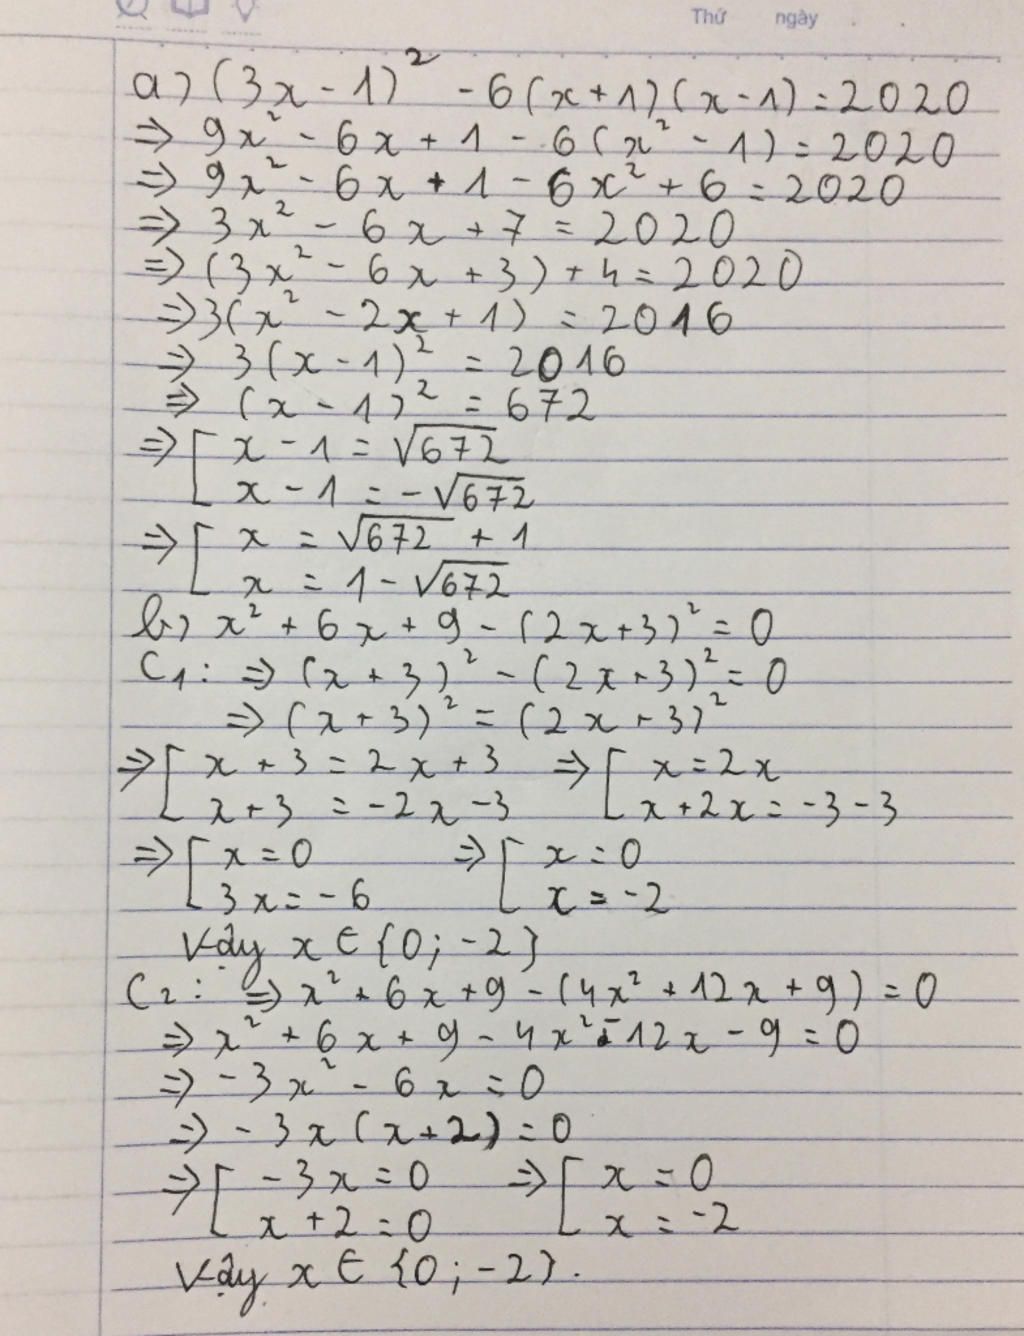 Thứ ngày
a) (3x - 1)² - 6(x+1)(x-1) = 2020
=> 9x² - 6x + 1 - 6(x² - 1) = 2020
=> 9x² - 6x + 1 - 6x² + 6 = 2020
=> 3x² - 6x + 7 = 2020
=> (3x² - 6x + 3) + 4 = 2020
=> 3(x² - 2x + 1) = 2016
=> 3(x - 1)² = 2016
=> (x - 1)² = 672
=> [ x - 1 = √672
x - 1 = -√672
=> [ x = √672 + 1
x = 1 - √672
b) x² + 6x + 9 - (2x+3)² = 0
C₁: => (x + 3)² - (2x + 3)² = 0
=> (x + 3)² = (2x + 3)²
=> [ x + 3 = 2x + 3 => [ x = 2x
x + 3 = -2x - 3 x + 2x = -3 - 3
=> [ x = 0 => [ x = 0
3x = -6 x = -2
Vậy x ∈ {0; -2}
C₂: => x² + 6x + 9 - (4x² + 12x + 9) = 0
=> x² + 6x + 9 - 4x² - 12x - 9 = 0
=> -3x² - 6x = 0
=> -3x(x+2) = 0
=> [ -3x = 0 => [ x = 0
x + 2 = 0 x = -2
Vậy x ∈ {0; -2}.